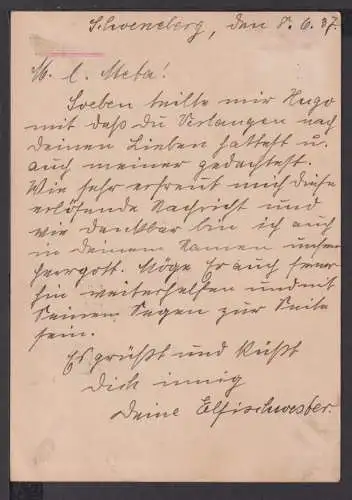 Schoeneberg, den 8. 6. 37.
M. l. Meta!
Soeben teilte mir Hugo
mit daß du Verlangen nach
deinen Lieben hattest u.
auch meiner gedachtest.
Wie sehr erfreut mich diese
erlösende Nachricht und
wie dankbar bin ich auch
in deinem Namen unserm
Herrgott. Möge Er auch ferner
hin weiterhelfen und mit
Seinem Segen zur Seite
sein.
Es grüßt und küßt
dich innig
deine Elfischwester.